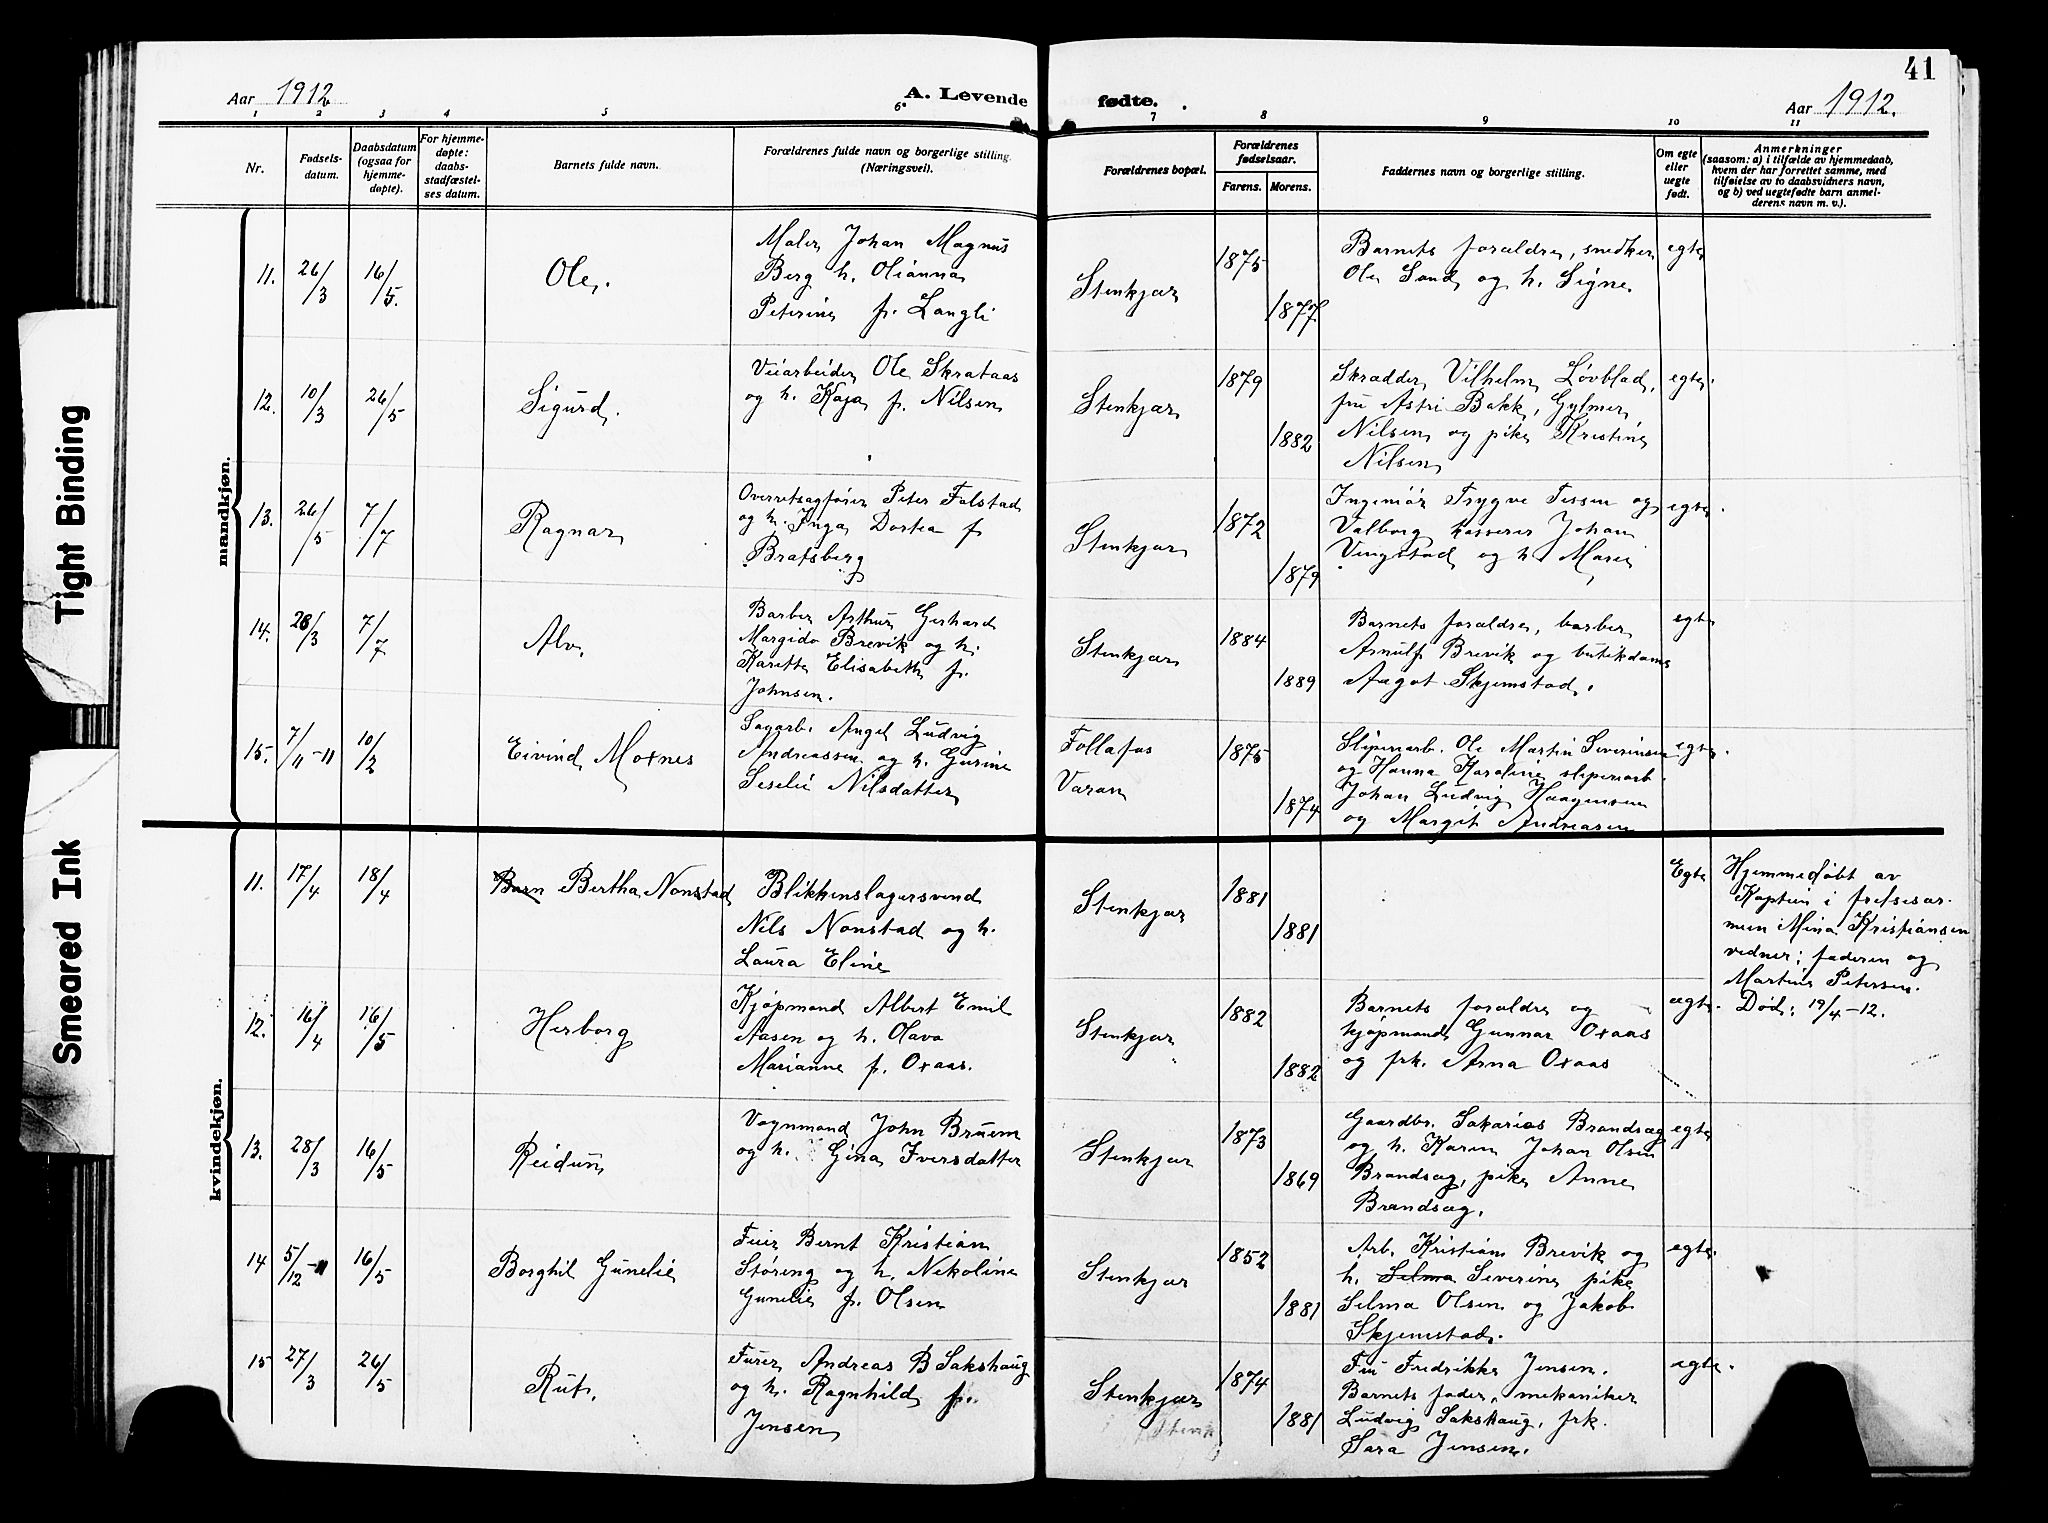 41
Aar 1912
A. Levende
fødte.
Aar 1912.
1 2 3 4 5 6 7 8 9 10 11
Nr.
Fødsels-
datum.
Daabsdatum
(ogsaa for
hjemme-
døpte).
For hjemme-
døpte:
daabs-
stadfæstel-
ses datum.
Barnets fulde navn.
Forældrenes fulde navn og borgerlige stilling.
(Næringsvei).
Forældrenes bopæl.
Forældrenes
fødselsaar.
Farens. Morens.
Faddernes navn og borgerlige stilling.
Om egte
eller
uegte
født.
Anmerkninger
(saasom: a) i tilfælde av hjemmedaab,
hvem der har forrettet samme, med
tilføielse av to daabsvidners navn,
og b) ved uegtefødte barn anmel-
derens navn m. v.).
Tight Binding
Smeared Ink
mandkjøn.
11. 26/3 16/5. Ole.
Maler Johan Magnus
Berg h. Olianna
Peterine f. Langli
Stenkjær
1875
1877
Barnets forældre, snedker
Ole Sand og h. Signe
egte
12. 10/3 26/5 Sigurd.
Veiarbeider Ole Skrataas
og h. Kaja f. Nilsen
Stenkjær
1879
1882
Skrædder Vilhelm Løvblad,
fru Astri Bakk, Gylmer
Nilsen og pike Kristine
Nilsen
egte.
13. 26/5 7/7 Ragnar
Overretsagfører Peter Falstad
og h. Inga Dortea f.
Bratsberg
Stenkjær
1872
1879
Ingeniør Trygve Tessem og
Valborg kasserer Johan
Vingstad og h. Marie
egte.
14. 28/3 7/7 Alv.
Barber Arthur Gerhard
Margido Brevik og h.
Karette Elisabeth f.
Johnsen.
Stenkjær
1884
1889
Barnets forældre, barber
Arnulf Brevik og butikdame
Aagot Skjemstad.
egte
15. 7/11-11 10/2 Eivind Moxnes
Sagarb. Angel Ludvig
Andreassen og h. Gurine
Seselie Nilsdatter
Follafos
Varan
1875
1874
Sliperiarb. Ole Martin Severinsen
og Hanna Karoline sliperiarb.
Johan Ludvig Haagensen
og Margit Andreasen
egte.
kvindekjøn.
11. 17/4 18/4 Barn Bertha Nonstad
Blikkenslagersvend
Nils Nonstad og h.
Laura Eline
Stenkjær
1881
1881
Egte
Hjemmedøbt av
Kaptein i frelsesar-
meen Mina Kristiansen
vidner: faderen og
Martin Petersen.
Død: 19/4-12.
12. 16/4 16/5 Herborg
Kjøpmand Albert Emil
Aasen og h. Olava
Marianne f. Oxaas.
Stenkjær
1882
1882
Barnets forældre og
kjøpmand Gunnar Oxaas
og frk. Arna Oxaas
ægte.
13. 28/3 16/5 Reidun
Vognmand John Bruem
og h. Gina Iversdatter
Stenkjær
1873
1869
Gaardbr. Sakarias Brandsæg
og h. Karen Johan Olsen
Brandsæg, pike Anne
Brandsæg.
egte
14 5/12-11 16/5 Borghil Gunelie
Fuer Bernt Kristian
Støreng og h. Nikoline
Gunelie f. Olsen
Stenkjær
1852
1881
Arb. Kristian Brevik og
h. Selma Severine pike
Selma Olsen og Jakob
Skjemstad.
egte.
15 27/3 26/5 Rut.
Furer Andreas B Sakshaug
og h. Ragnhild f.
Jensen
Stenkjær
1874
1881
Fru Fredrikke Jensen.
Barnets fader, mekaniker
Ludvig Sakshaug, frk.
Sara Jensen.
egte.